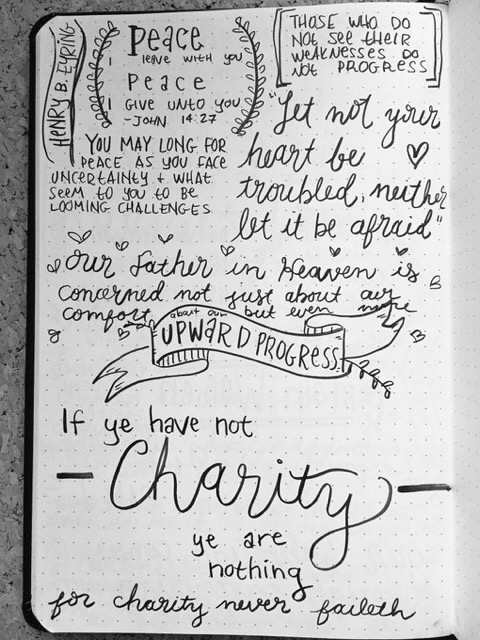 HENRY B. EYRING
Peace
I leave with you
Peace
I GIVE UNTO YOU
-JOHN 14:27
THOSE WHO DO
NOT SEE THEIR
WEAKNESSES DO
NOT PROGRESS
YOU MAY LONG FOR
PEACE AS YOU FACE
UNCERTAINTY + WHAT
SEEM TO YOU TO BE
LOOMING CHALLENGES
"Let not your
heart be
troubled, neither
let it be afraid"
Our Father in Heaven is
concerned not just about our
comfort but even more
about our
UPWARD PROGRESS
If ye have not
Charity
ye are
nothing
for charity never faileth